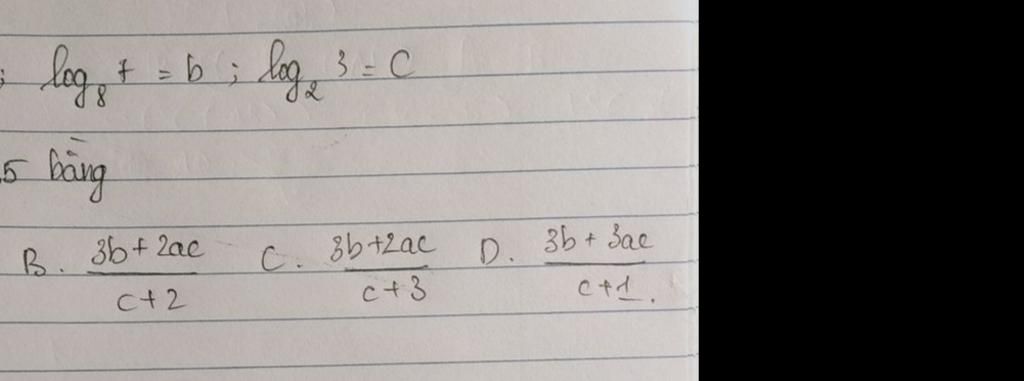 ; log₈ 7 = b ; log₂ 3 = C
5 bằng
B. (3b + 2ac)/(c + 2) C. (3b + 2ac)/(c + 3) D. (3b + 3ac)/(c + 1).